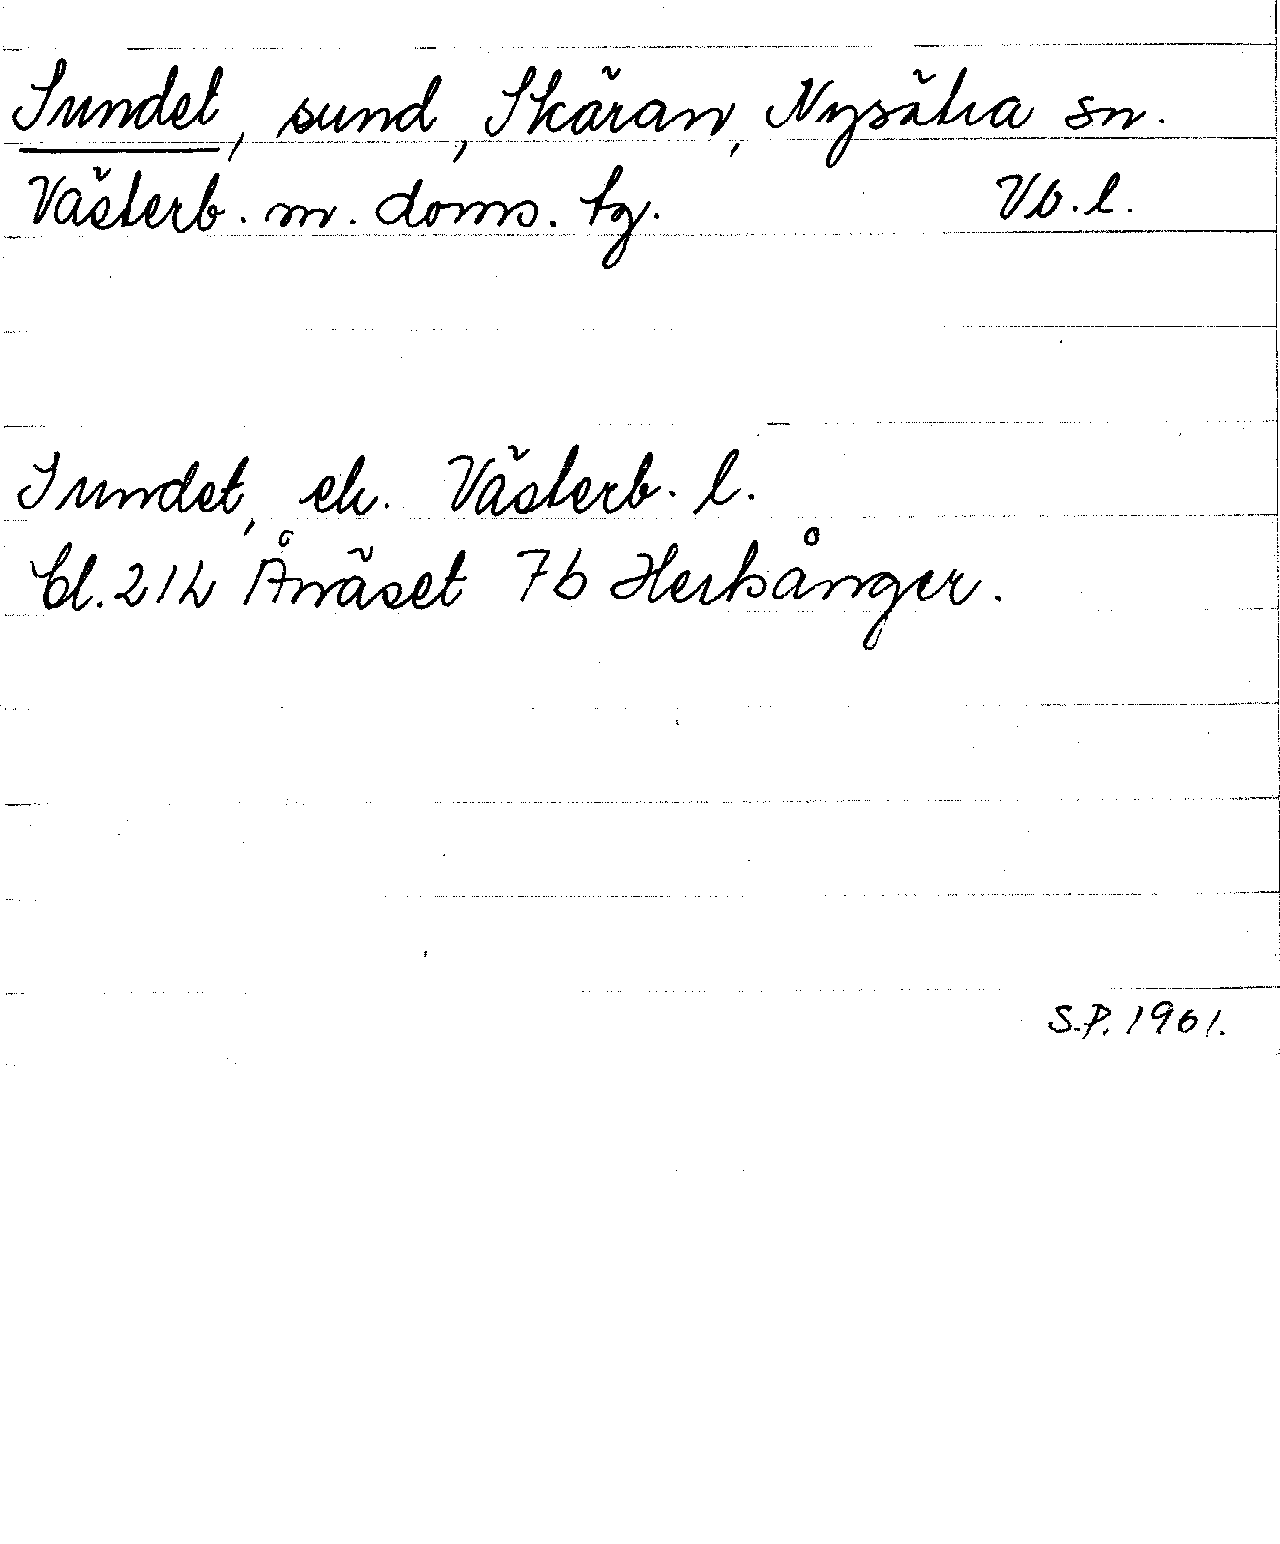 Sundet, sund, Skäran, Nysätra sn.
Västerb. m. doms. tg. Vb. l.
Sundet, ek. Västerb. l.
bl. 21L Ånäset 7b Herkånger.
S.P. 1961.